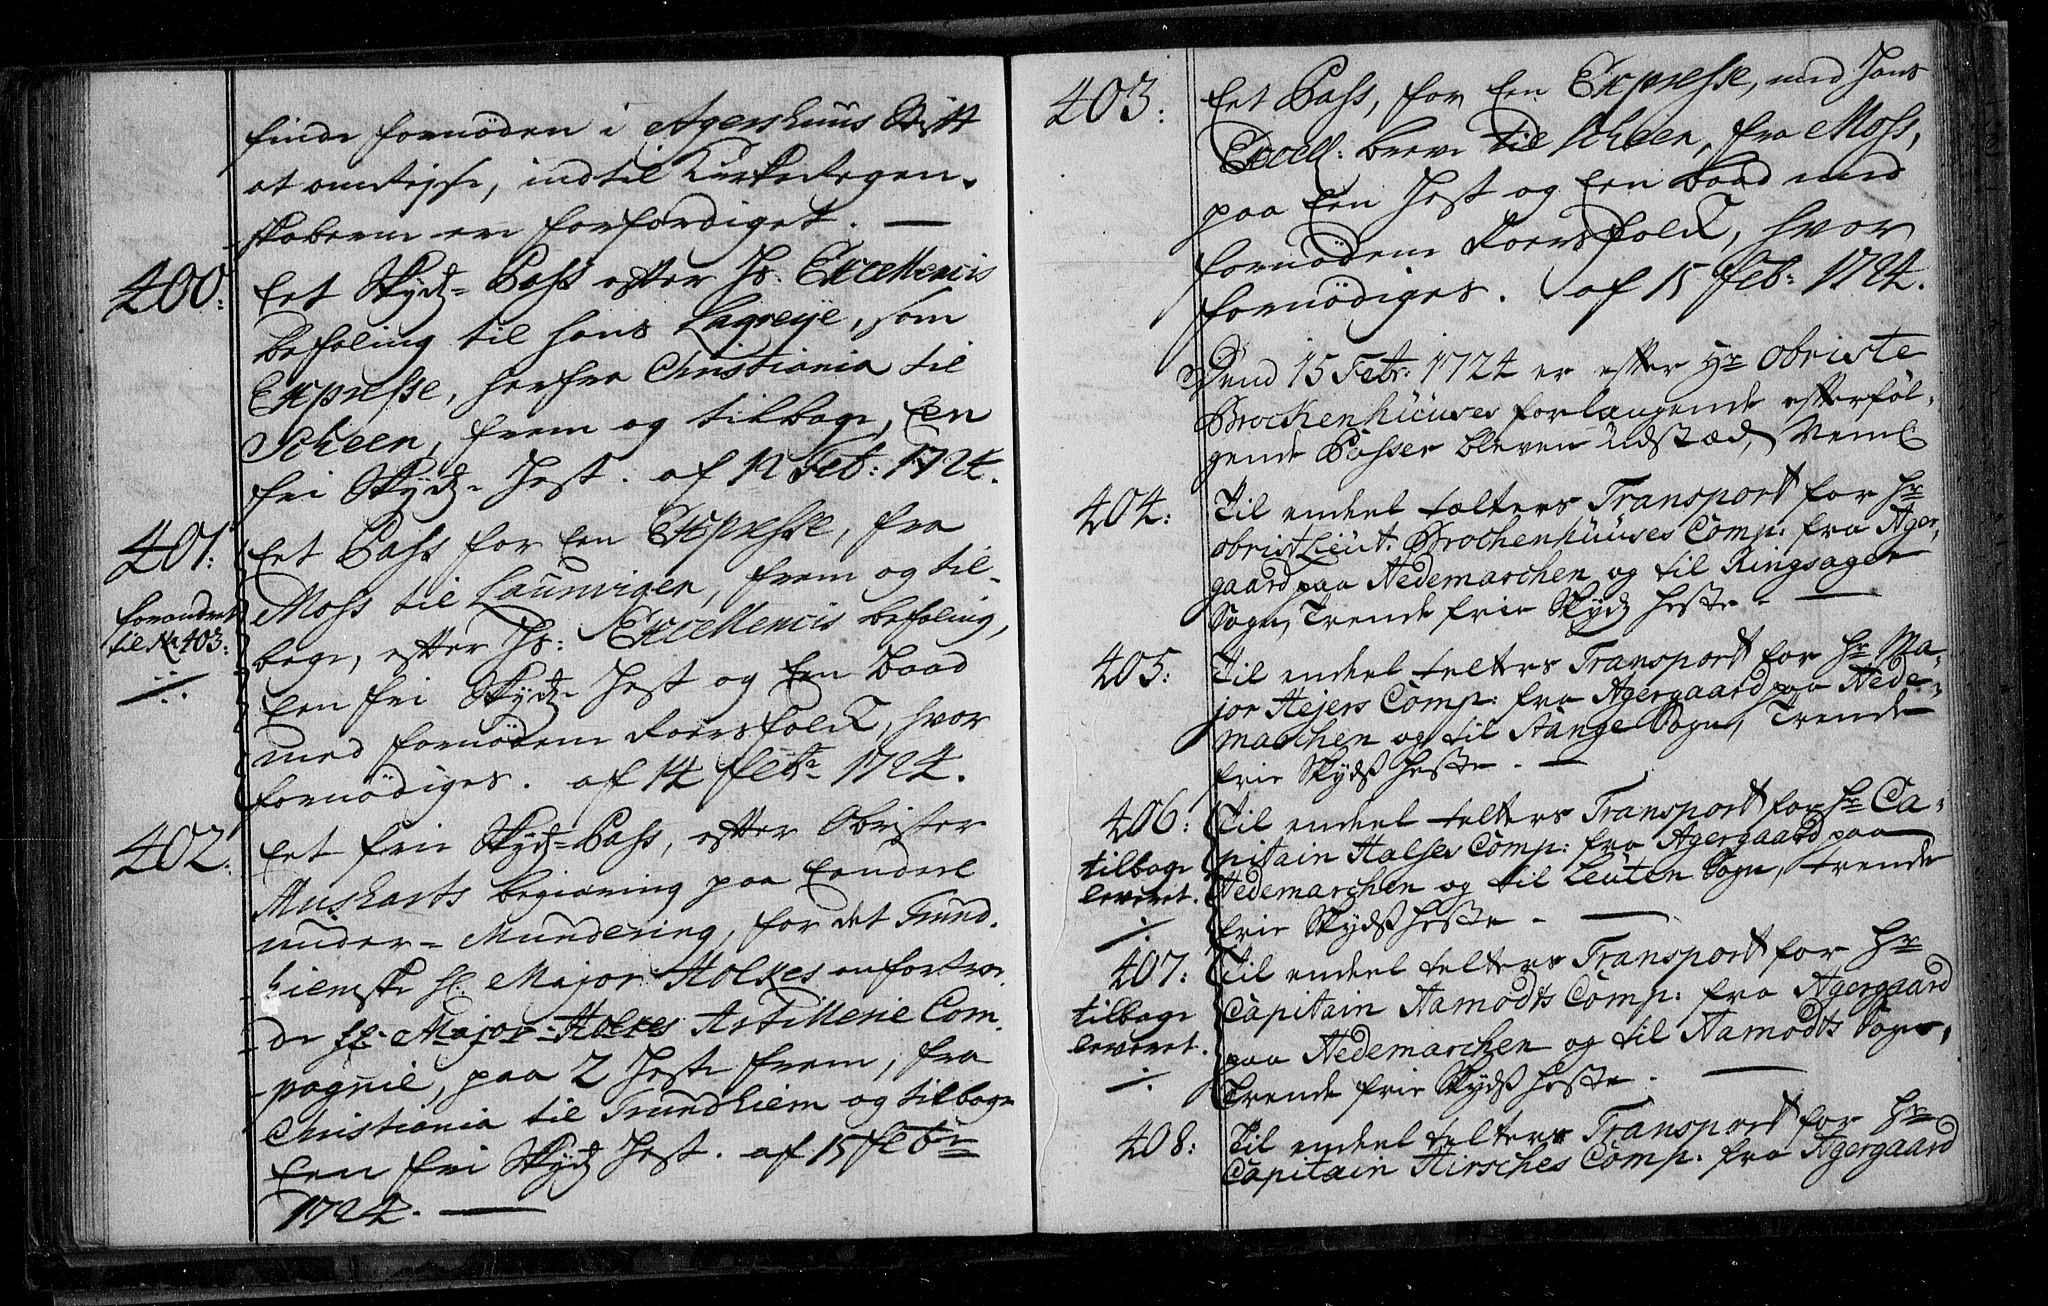 finde fornøden i Agershuus Stift
at omreyse, indtil Kirkeregen-
skaberne ere forfærdiget. —
400: Eet Skydz-Pass efter Hs: Excellencis
befaling til hans Laqveye, som
Expresse, herfra Christiania til
Scheen, frem og tilbage, Een
fri Skydz-Hest. af 12 Feb: 1724.
401: Eet Pass for een Expresse, fra
forandret
til No 403:
Moss til Laurvigen, frem og til-
bage, efter Hs: Excellencis befaling,
Een fri Skydz-Hest og Een Baad
med fornøden Roersfolk, hvor
fornødiges. af 14 Febr: 1724.
402: Eet frie Skydz-Pass, efter Obrister
Musharts begiæring paa Eendeel
under-Mundering, for det Trund-
hiemske
Major Holkes Artillerie Com-
pagnie, paa 2 Heste frem, fra
Christiania til Trundhiem og tilbage
Een fri Skydz Hest. af 15 Febr:
1724. —
403: Eet Pass, for Een Expresse, med Hans
Excell: breve til Scheen, fra Moss,
paa Een Hest og Een Baad med
fornøden Roersfolk, hvor
fornødiges. af 15 Feb: 1724.
Dend 15 Febr: 1724 er efter Hr Obriste
Brockenhüüses forlangende efterföl-
gende Passer bleven Udstæd, Neml
404: Til endeel telters Transport for Hr
ObristLieut. Brochenhüüses Comp: fra Ager-
gaard paa Hedemarchen og til Ringsager
Sogn, Trende frie Skydz Heste. —
405: Til endeel telters Transport for Hr Ma-
jor Hejers Comp: fra Agergaard paa Hede-
marchen og til Stange Sogn, Trende
frie Skyds Heste. —
406: Til endeel telters Transport for Hr Ca-
tilbage
leveret.
pitain Halses Comp: fra Agergaard paa
Hedemarchen og til Leuten Sogn, trende
frie Skyds Heste. —
407: Til endeel telters Transport for Hr
tilbage
leveret.
Capitain Aamodts Comp: fra Agergaard
paa Hedemarchen og til Aamodts Sogn,
Trende frie Skyds Heste. —
408: Til endeel telters Transport for Hr
Capitain Hirsches Comp: fra Agergaard